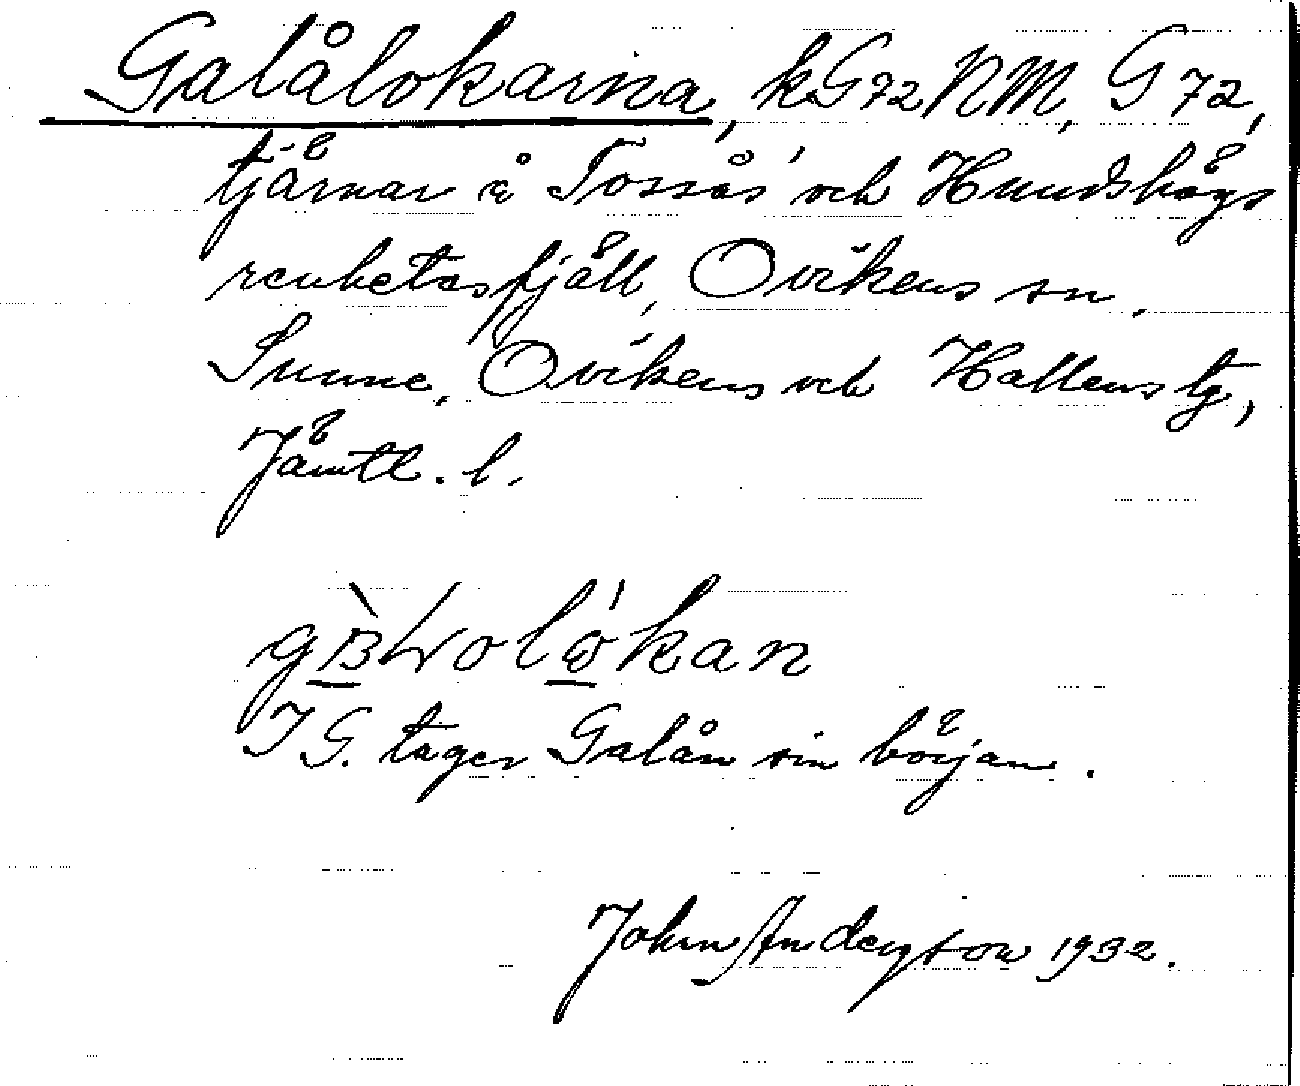 Galålokarna, kG72NM, G72,
tjärnar å Tossås' och Hundshögs
renbetesfjäll, Ovikens sn.
Sunne, Ovikens och Hallens tg,
Jämtl. l.
I G. tager Galån sin början.
John Anderzton 1932.